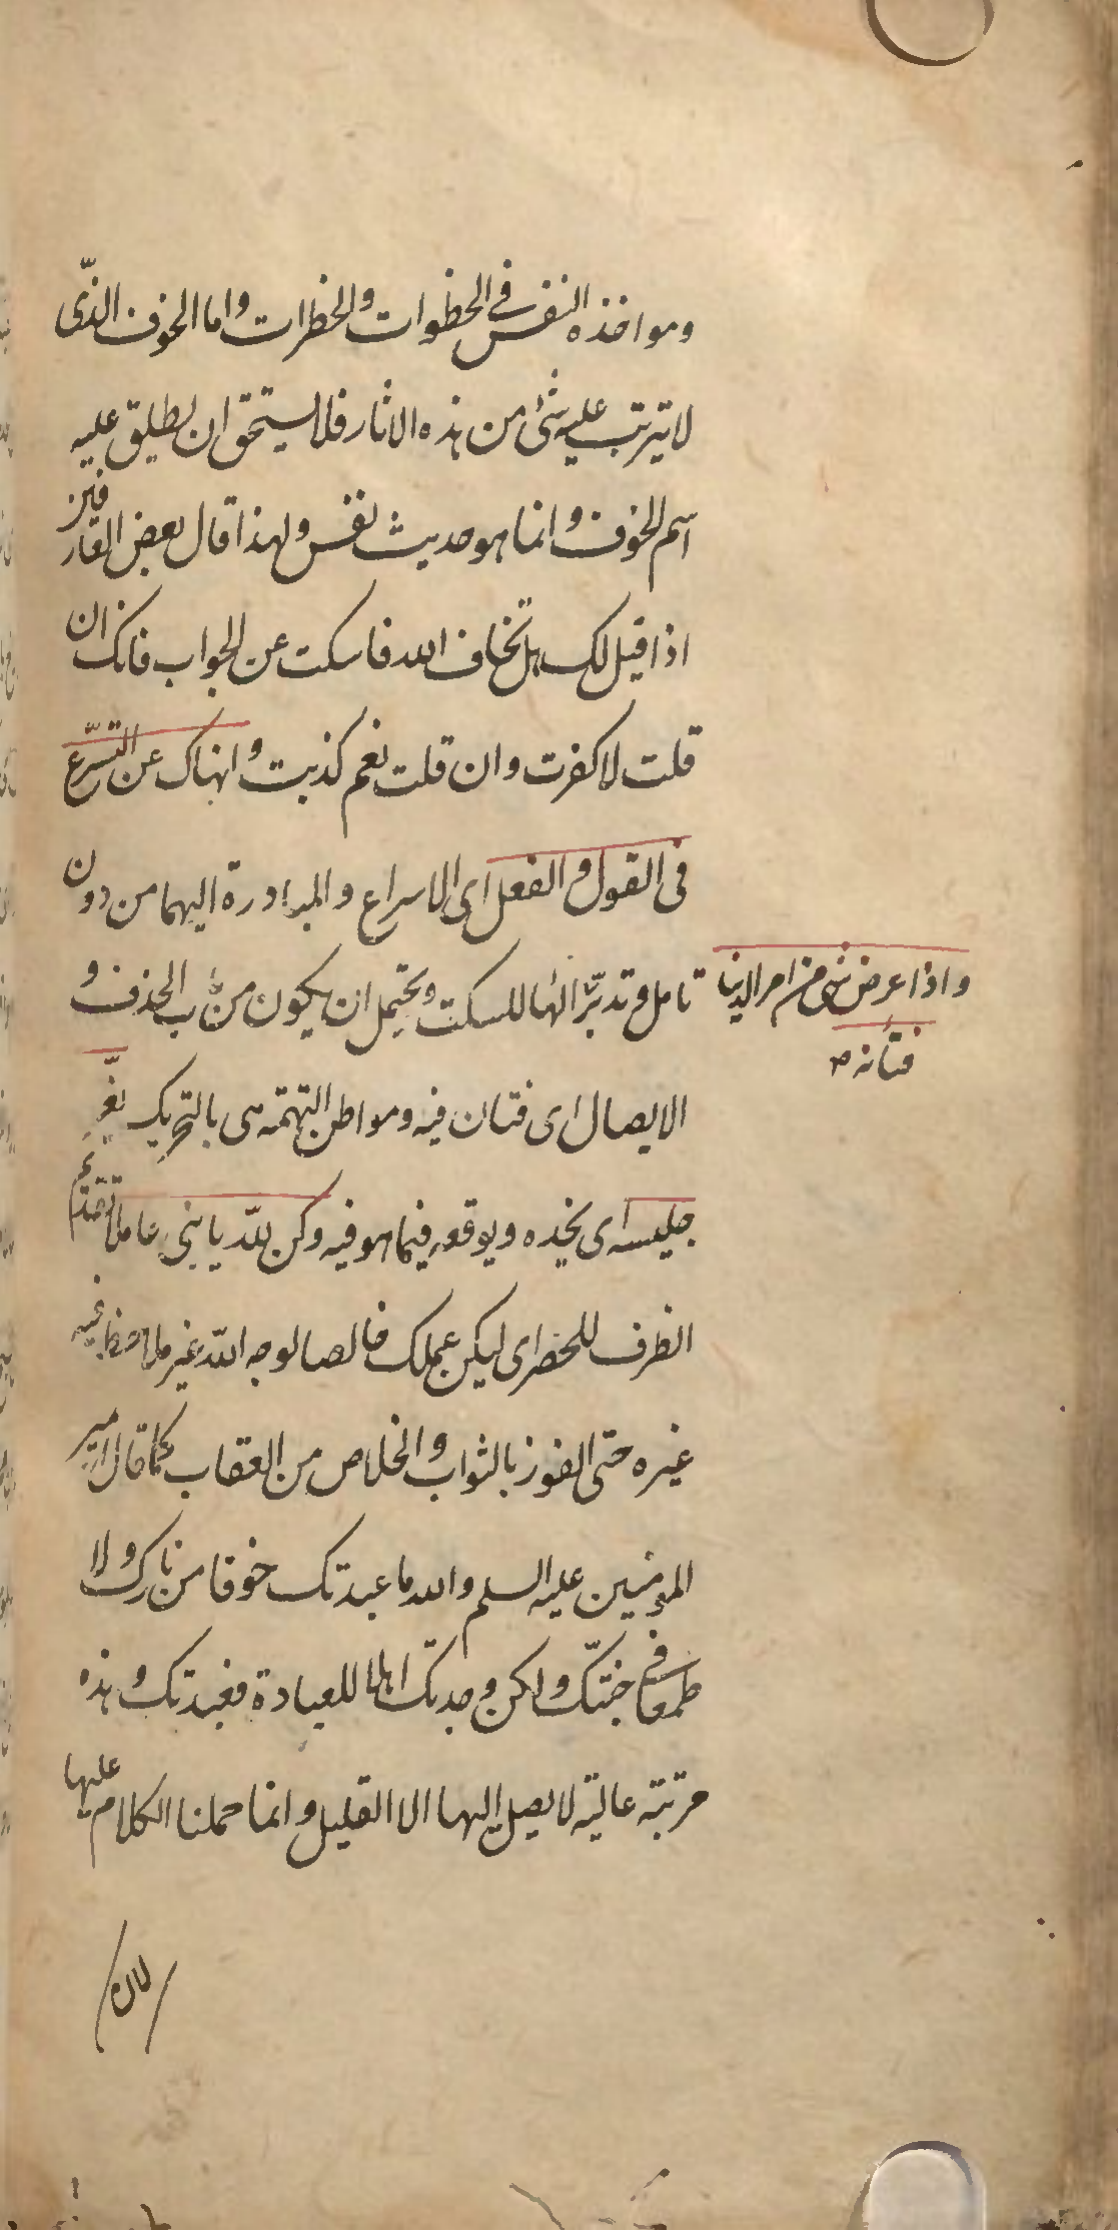 ومواخذه النفس في الخطوات والخطرات واما الخوف الذّى
لا يترتب عليه شئ من هذه الاثار فلا يستحق ان يطلق عليه
اسم الخوف وانما هو حديث نفس ولهذا قال بعض العارفين
اذا قيل لك هل تخاف الله فاسكت عن الجواب فانك ان
قلت لا كفرت وان قلت نعم كذبت وانهاك عن التسرّع
فى القول والفعل اى الاسراع والمبادرة اليهما من دون
تامل وتدبّر الهاء للسكت ويحتمل ان يكون من باب الحذف و
واذا عرض شئ من امر الدنيا
فتانه
الايصال اى فتان فيه ومواطن التهمة هى بالتحريك يغرّ
جليسه اى يخده ويوقعه فيما هو فيه وكن للّه يا بنى عاملا تقديم
الظرف للحصر اى ليكن عملك خالصا لوجه اللّه غير ملاحظ فيه
غيره حتى الفوز بالثواب والخلاص من العقاب كما قال امير
المؤمنين عليه السلم والله ما عبدتك خوفا من نارك ولا
طمعا فى جنتّك ولكن وجدتك اهلا للعبادة فعبدتك وهذه
مرتبة عالية لا يصل اليها الا القليل وانما حملنا الكلام عليها
لان